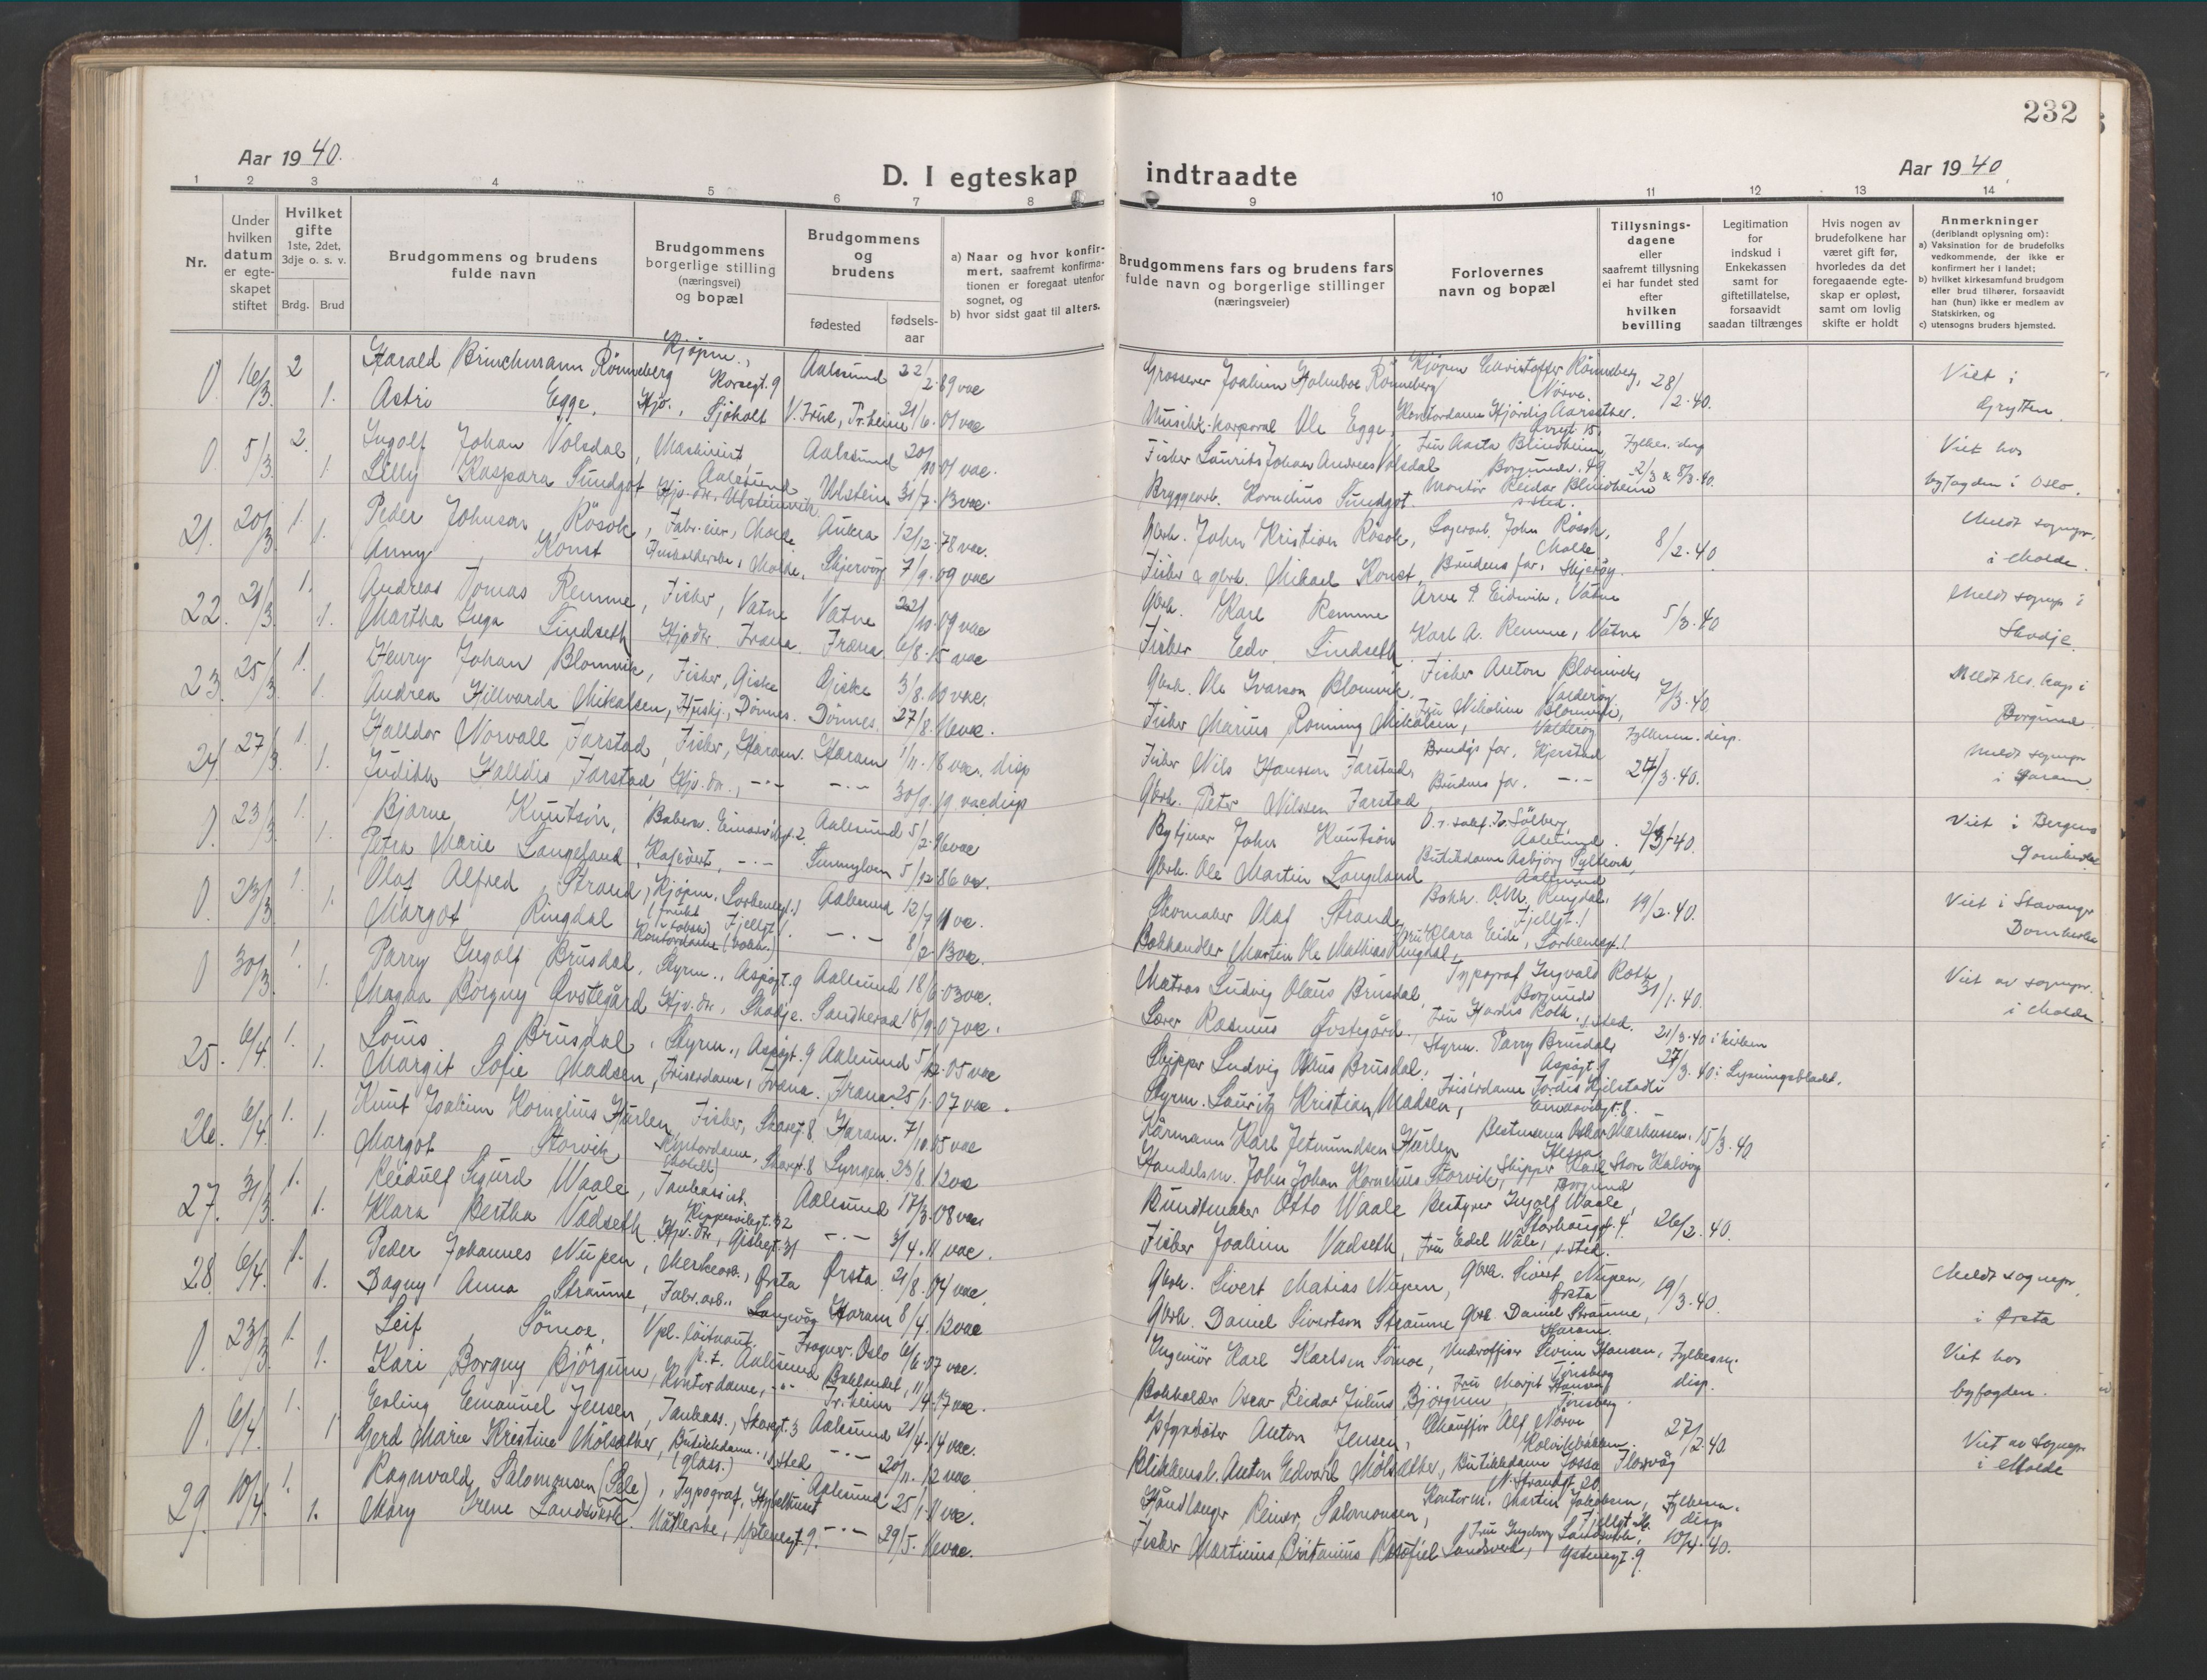 232
Aar 1940.
D. I egteskap indtraadte
Aar 1940.
1 2 3 4 5 6 7 8 9 10 11 12 13 14
Nr.
Under hvilken datum er egteskapet stiftet
Hvilket gifte 1ste, 2det, 3dje o. s. v.
Brdg. Brud
Brudgommens og brudens fulde navn
Brudgommens borgerlige stilling (næringsvei) og bopæl
Brudgommens og brudens
fødested fødselsaar
a) Naar og hvor konfirmert, saafremt konfirmationen er foregaat utenfor sognet, og
b) hvor sidst gaat til alters.
Brudgommens fars og brudens fars fulde navn og borgerlige stillinger (næringsveier)
Forlovernes navn og bopæl
Tillysningsdagene eller saafremt tillysning ei har fundet sted efter hvilken bevilling
Legitimation for indskud i Enkekassen samt for giftetillatelse, forsaavidt saadan tiltrænges
Hvis nogen av brudefolkene har været gift før, hvorledes da det foregaaende egteskap er opløst, samt om lovlig skifte er holdt
Anmerkninger (deriblandt oplysning om):
a) Vaksination for de brudefolks vedkommende, der ikke er konfirmert her i landet;
b) hvilket kirkesamfund brudgom eller brud tilhører, forsaavidt han (hun) ikke er medlem av Statskirken, og
c) utensogns bruders hjemsted.
0 16/3. 2 Harald Brinchmann Rönneberg Kjøpm., Korsegt. 9 Aalesund 22/2.89 vac Grosserer Joakim Holmboe Rönneberg Kjøpm Christoffer Rönneberg, Nörve. 28/2.40. Viet i
1. Astri Egge, Hjv., Sjöholt V. Frue, Tr.heim 21/6.01 vac Musikk-korporal Ole Egge, Kontordame Hjördis Aarsether. Grytten
0 5/3 2. Ingolf Johan Volsdal, Maskinist Aalesund Aalesund 20/10.01 vac. Fisker Laurits Johan Andreas Volsdal Fru Aasta Blindheim Borgundv. 49 Fylkes. disp Viet hos
1 Lilly Kaspara Sundgot Hjv. dr. Ulsteinvik Ulstein 31/7.13 vac. Bryggearb. Kornelius Sundgot. Montör Reidar Blindheim s. sted. 2/3 & 8/3.40. byfogden i Oslo.
21. 20/3 1. Peder Johnsen Rösok, Fabr.eier, Molde Aukra 12/12.78 vac. Gbrk. John Kristian Rösok, Lagerarb. John Rösok, Molde 8/2.40 Meldt sognepr.
1. Anny Konst Husholderske, Molde. Skjervöy 7/9.09 vac Fisker & gbrk. Mikael Konst, Brudens far, Skjervöy. i Molde.
22. 21/3. 1. Andreas Tomas Remme, Fisker, Vatne Vatne 22/10.09 vac Gbrk. Karl Remme Arve P. Eidsvik, Vatne 5/3.40 Meldt sognep i
1. Martha Inga Lindseth Hjv dr. Fræna Fræna 6/8.15 vac Fisker Edv. Lindseth Karl A. Remme, Vatne Skodje.
23. 25/3. 1. Henry Johan Blomvik, Fisker, Giske Giske 3/8.10 vac. Gbrk. Ole Ivarson Blomvik. Fisker Anton Blomvik, Valderöy 7/3.40 Meldt res. kap i
1. Andrea Hillvarda Mikalsen, Huskj., Dönnes. Dönnes. 27/8.16 vac. Fisker Marius Ronning Mikalsen, Fru Nikoline Blomvik, Valderöy Borgund.
24 27/3. 1. Halldor Norvall Farstad, Fisker, Haram Haram 1/11.18 vac. disp Fisker Nils Hansson Farstad, Brudgs far, Hjerstad Fylkesm. disp. Meldt sognepr
1. Judith Halldis Farstad, Hjv. dr., –"– –"– 30/9.19 vac disp Gbrk. Peter Nilssen Farstad Brudens far. –"– 27/3.40. i Haram
0 23/3 1. Bjarne Knutsön, Bakerm. Einarvikgt. 2. Aalesund 5/2.96 vac Bytjener John Knutsön Aalesund 2/3.40. Viet i Bergens
1. Petra Marie Langeland, Kafévert, –"– Sunnylven 5/12.86 vac. Gbrk. Ole Martin Langeland Butikkdame Asbjörg Syltevik, Aalesund Domkirke
0. 23/3 1. Olaf Alfred Strand, Kjøpm. Aalesund 12/7.11 vac. Skomaker Olaf Strand, Bokh. O.M. Ringdal, Fjellgt. 1 19/2.40. Viet i Stavanger
1. Margot Ringdal Kontordame (bokh.) Fjellgt. –"– 8/2.13 vac. Bokhandler Martin Ole Mathias Ringdal, Fru Klara Eide, Domkirke
0 30/3. 1. Parry Ingolf Brusdal, Styrm., Aspøgt. 9 Aalesund 18/6.03 vac. Matros Ludvig Olaus Brusdal, Typograf Ingvald Roth Borgund 31/1.40. Viet av sognepr.
1. Magna Borgny Övstegård Hjv. dr., Skodje. Sandherad 18/9.07 vac. Lærer Rasmus Övstegård., Fru Hardis Roth, s. sted. i Molde
25. 6/4. 1. Louis Brusdal, Styrm., Aspøgt. 9 Aalesund 5/12.05 vac Skipper Ludvig Olaus Brusdal, Styrm. Parry Brusdal, Aspøgt. 9 21/3.40 i kirken
1. Margit Sofie Madsen, Friserdame, Fræna. Fræna 25/1.07 vac. Styrm. Lauritz Kristian Madsen, Friserdame Jordis Hjelstadli 27/3.40 i Lysningsbladet.
26. 6/4. 1. Knut Joakim Kornelius Hurlen Fisker, Skaregt. 8. Haram. 7/10.05 vac Kårmann Karl Jetmundsen Hurlen Bestmann Oskar Markussen, Hessa 15/3.40
1. Margot Storvik Kontordame, Skaregt. 8 Lyngen. 23/8.12 vac Handelsm. John Johan Kornelius Storvik, Skipper Karl Store Kalvöy Borgund
27. 31/3. 1. Reidulf Sigurd Waale, Tankassist. Keppervikgt. 32 Aalesund 17/3.08 vac Buntmaker Otto Waale Bestyrer Ingolf Waale, Storhauggt. 4. 26/2.40.
1. Klara Bertha Vadseth Hjv. dr., Giskegt. 31 –"– 3/4.11 vac. Fisker Joakim Vadseth, Fru Edel Wåle, s. sted.
28. 6/4. 1. Peder Johannes Nupen, Merkearb., Ørsta Ørsta 21/8.04 vac. Gbrk. Sivert Matias Nupen, Gbrk. Sivert Nupen, Ørsta 19/3.40. Meldt sognepr
1. Dagny Anna Straume, Fabr.arb., Langevåg Haram 8/4.12 vac Gbrk. Daniel Sivertson Straume Gbrk. Daniel Straume, Haram. i Ørsta
0. 23/3 1. Leif Sömoe, Vpl. löitnant p.t. Aalesund Frogner. Oslo 6/6.07 vac. Ingeniör Karl Karlsen Sömoe, Underoffiser Hansen, Tönsberg Fylkesm. Viet hos
1. Kari Borgny Björgum, Kontordame, –"– Bakklandet, Tr.heim 11/4.17 vac. Bokholder Oscar Reidar Julius Björgum Fru Margit Hansen Tönsberg disp. byfogden.
0. 6/4. 1. Erling Emanuel Jensen, Tankass., Skaregt. 3 Aalesund 21/4.14 vac. Anton Jensen, Chauffør Alf Nörve 27/2.40.
1 Gerd Marie Kristine Mölsæther, Butikkdame. (glass.) s. sted –"– 20/11.12 vac. Blikkensl. Anton Edvard Mölsæther, Butikkdame Jossa Florvåg N. Strandgt. 20. Viet av Sognepr i Molde
29. 10/4. 1. Ragnvald Salomonsen (Sele), Typograf, Aalesund 25/1.11 vac. Håndlanger Reiner Salomonsen, Kontorm. Martin Jakobsen, Fjellgt. Fylkesm. disp
1. Mary Irene Landsverk. Nåtlerske, Ystenesgt. 9. –"– 29/5.16 vac. Fisker Martinus Britanius Landsverk, Fru Ingeborg Landsverk, Ystenesgt. 9 10/4.40.